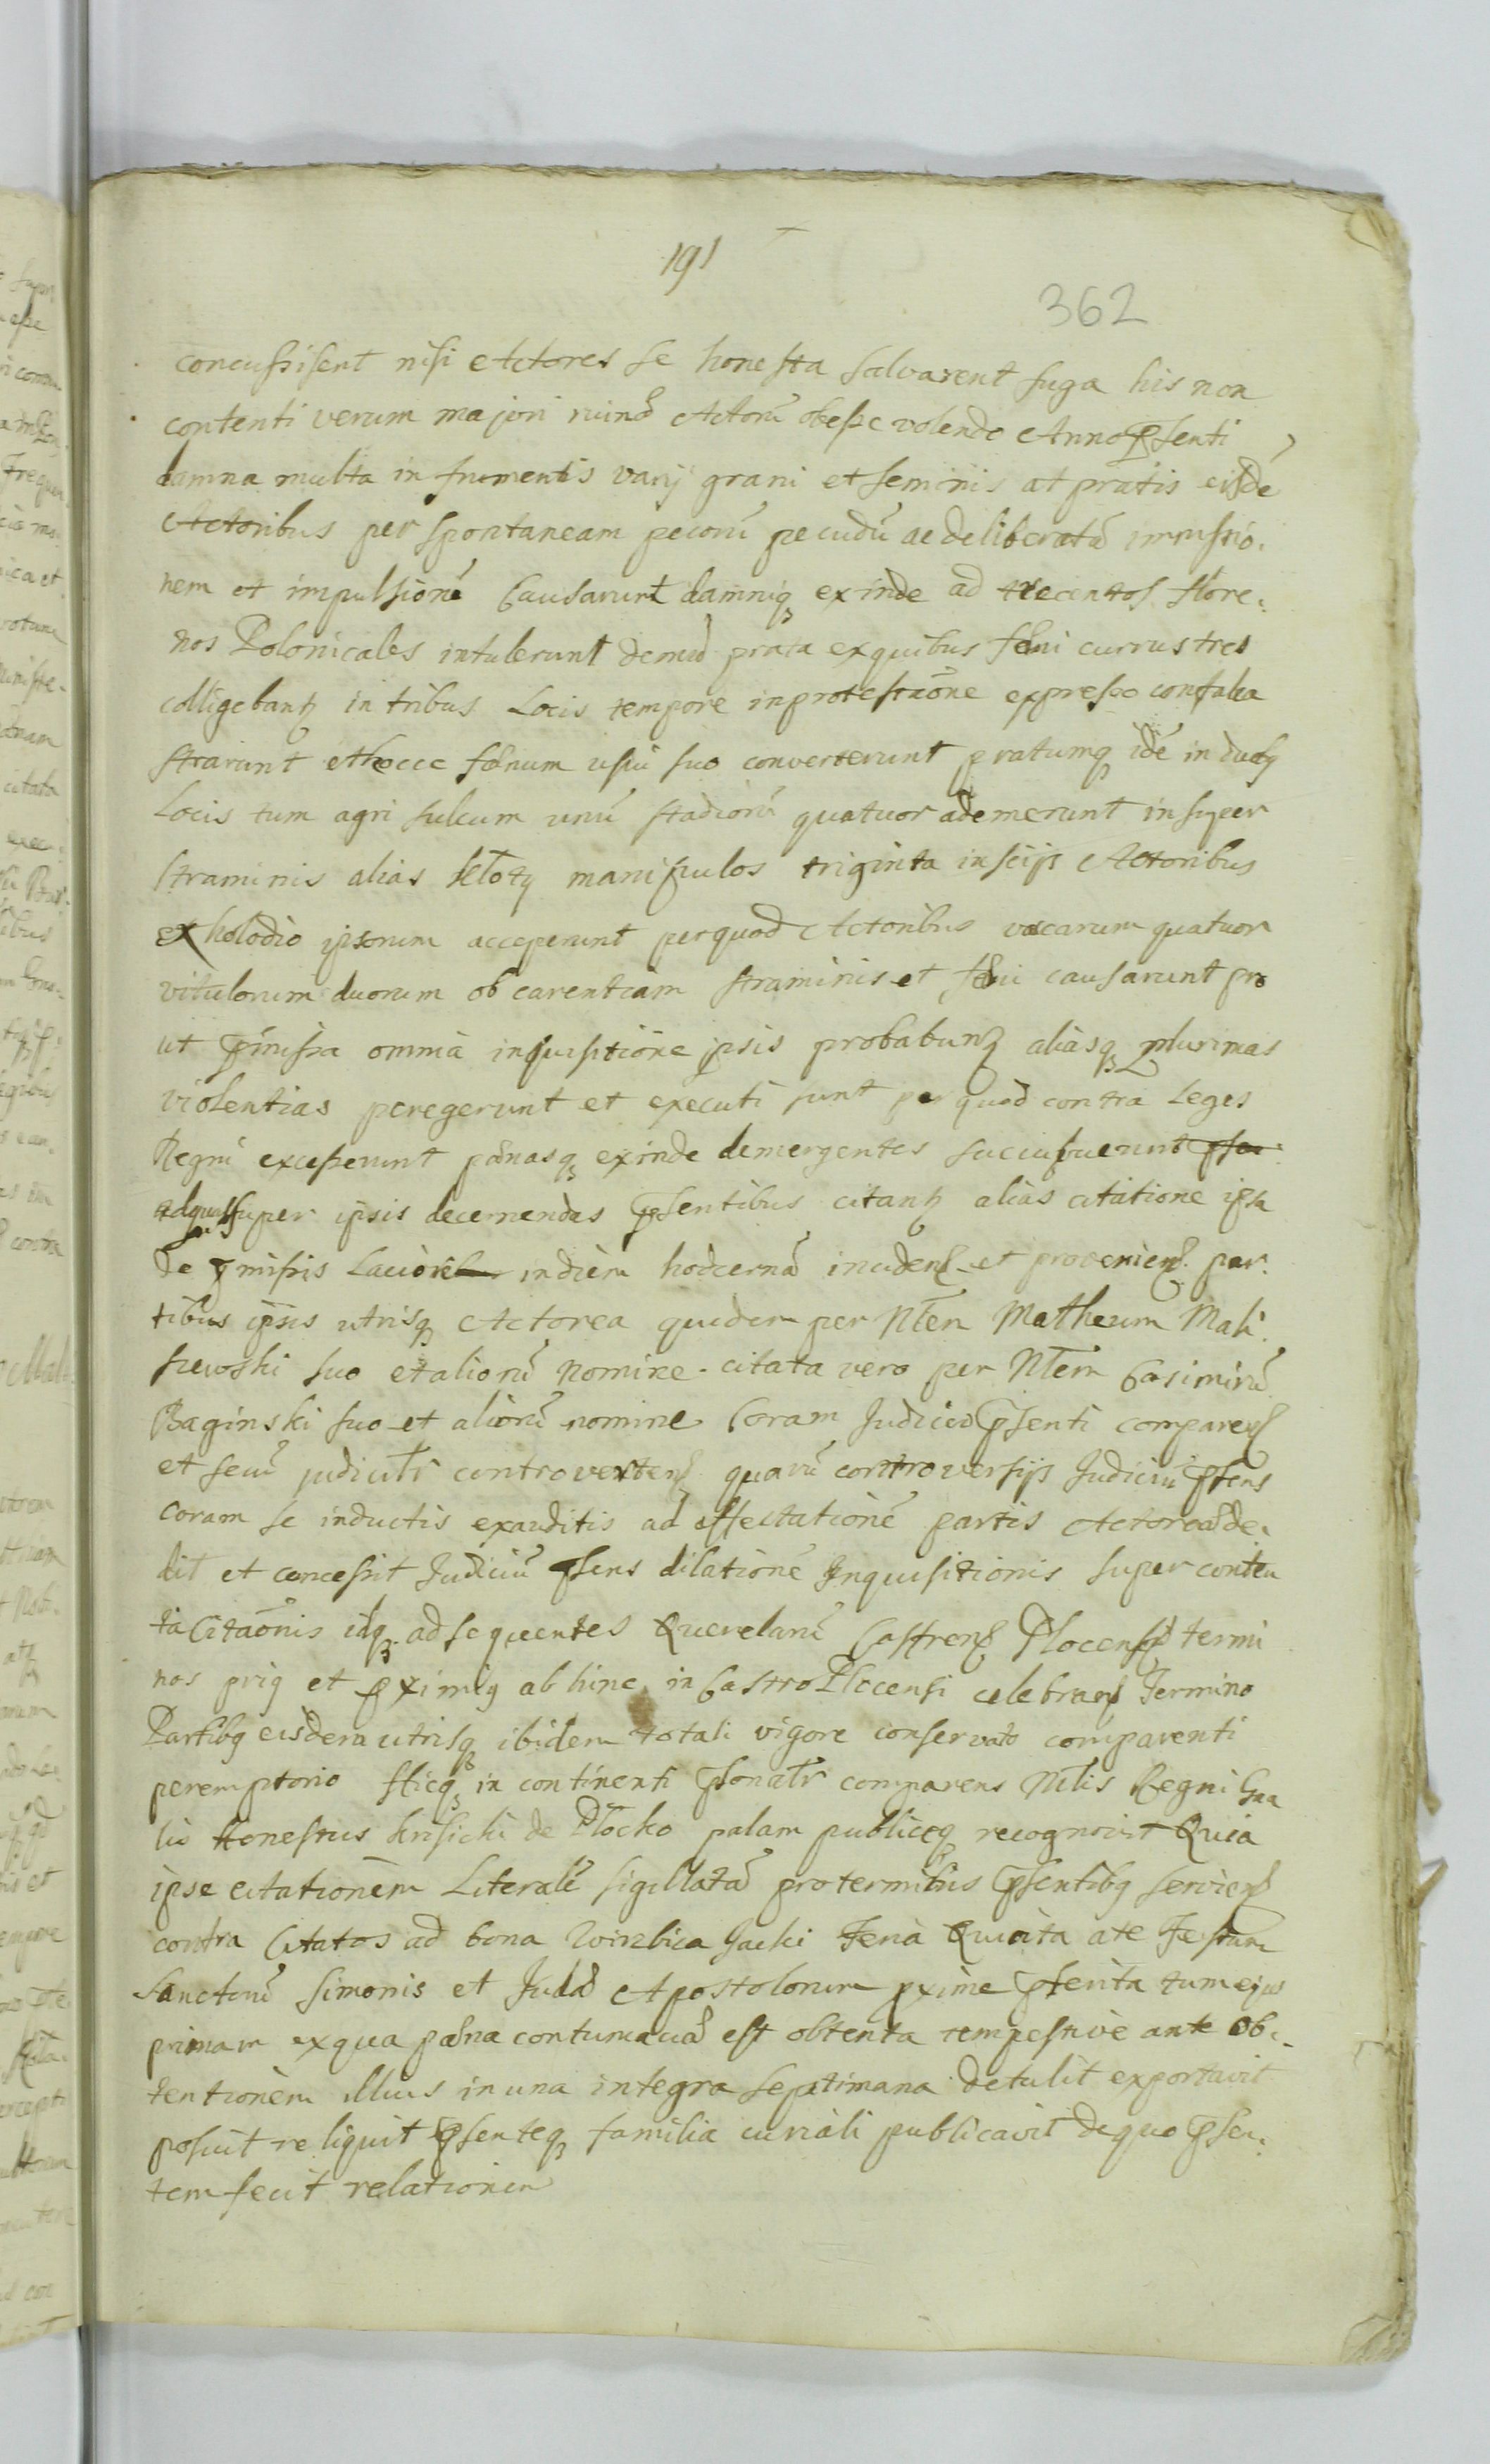 191
362
concussissent nisi Actores se honesta salvarent fuga his non
contenti verum majori ruinæ Actorũ obesse volendo Anno pñsenti
damna multa in frumentis varij grani et seminis at pratis eisdẽ
Actoribus per spontaneam pecorũ pecudũ ac deliberatã immissio.
nem et impulsionẽ Causarunt damniq3 exinde ad trecentos flore.
nos Polonicales intulerunt demũ prata ex quibus fæni currus tres
colligebantr in tribus Locis tempore in protestaõne expresso confalca
strarunt et hocce fænum usui suo converterunt pratumq3 idẽ in duobq
Locis tum agri sulcum unũ stadiorũ quatuor ademerunt insuper
straminis alias manipulos triginta inscijs Actoribus
ex holodio ipsorum acceperunt per quod Actoribus vacarum quatuor
vitulorum duorum ob carentiam straminis et fæni causarunt pro
ut pñmissa omnia inquisitiõne ipsis probabuntr aliasq3 plurimas
violentias peregerunt et executi sunt per quod contra Leges
Regni excesserunt pænasq3 exinde demergentes succubuerunt
ad quas super ipsis decernendas pñsentibus citantr alias citatione ipsa
de pmissis Latiori in diem hodiernã incidenẽ et provenienẽ par.
tibus ipsis utrisq3 Actorea quidem per Nlem Matheum Mali
szewski suo et aliorũ nomine. citata vero per Nlem Casimirũ
Baginski suo et aliorũ nomine Coram Judicio pñsenti comparenẽ
et secũ judiciltr controvertenẽ quarũ controversijs Judiciũ pñsens
coram se inductis exauditis ad affectationẽ partis Actoreæ de.
dit et concessit Judiciũ pñsens dilationẽ Inquisitionis super conten
ta Citaõnis idq3 ad sequentes Querelarũ Castrenẽ Plocensẽ termi
nos priq et pximiq ab hinc in Castro Plocensi celebranẽ Termino
Partibq eisdem utrisq3 ibidem totali vigore conservato comparenti
peremptorio Hicq3 in continenti psonaltr comparens Mlis Regni Gna
lis Honestus Krisicki de Płocko palam publiceq3 recognovit Quia
ipse citationem Literalẽ sigillatã pro terminis pñsentibq servienẽ
contra Citatos ad bona Winbica Gacki Feria Quinta ãte Festum
Sanctorũ Simonis et Judæ Apostolorum pxime pterita tum ejus
primam ex qua pæna contumaciæ est obtenta tempestive ante ob.
tentionem illius in una integra septimana detulit exportavit
posuit reliquit pñsenteq3 familia curiali publicavit de quo pñsen.
tem fecit relationem